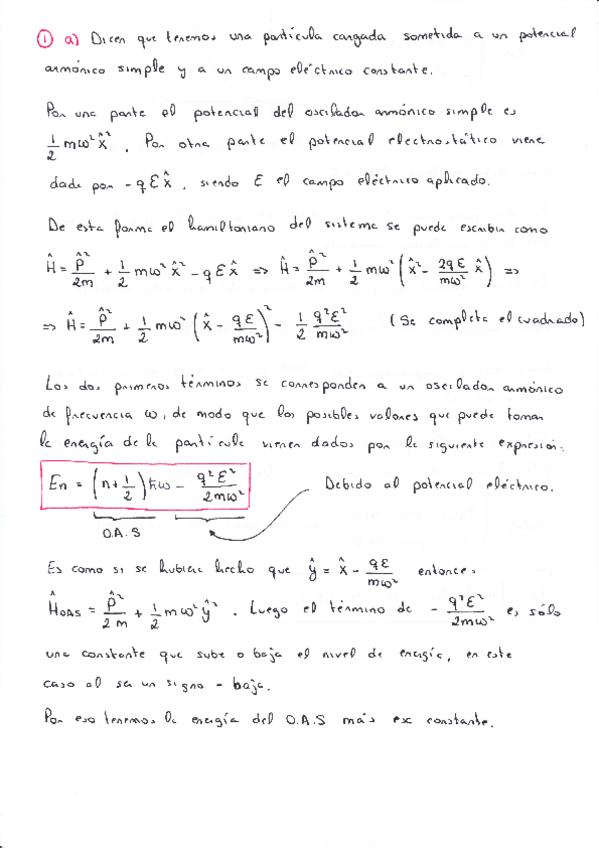 ① a) Dicen que tenemos una partícula cargada sometida a un potencial
armónico simple y a un campo eléctrico constante.
Por una parte el potencial del oscilador armónico simple es
1/2 mω² x̂². Por otra parte el potencial electrostático viene
dado por - q Ɛ x̂, siendo Ɛ el campo eléctrico aplicado.
De esta forma el hamiltoniano del sistema se puede escribir como
Ĥ = P̂²/2m + 1/2 mω² x̂² - qƐ x̂ => Ĥ = P̂²/2m + 1/2 mω² (x̂² - 2qƐ/mω² x̂) =>
=> Ĥ = P̂²/2m + 1/2 mω² (x̂ - qƐ/mω²)² - 1/2 q²Ɛ²/mω² (Se completa el cuadrado)
Los dos primeros términos se corresponden a un oscilador armónico
de frecuencia ω, de modo que los posibles valores que puede tomar
la energía de la partícula vienen dados por la siguiente expresión:
En = (n + 1/2) ħω - q²Ɛ²/2mω² Debido al potencial eléctrico.
O.A.S
Es como si se hubiese hecho que ŷ = x̂ - qƐ/mω² entonces
ĤOAS = P̂²/2m + 1/2 mω² ŷ². Luego el término de - q²Ɛ²/2mω² es sólo
una constante que sube o baja el nivel de energía, en este
caso al ser un signo - baja.
Por eso tenemos la energía del O.A.S más esa constante.